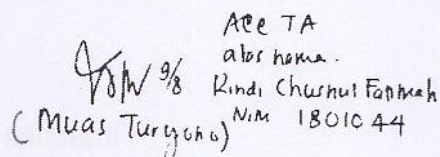 Acc TA
atas nama.
9/8 Rindi Chusnul Fatimah
(Muas Turyono) NIM 1801044